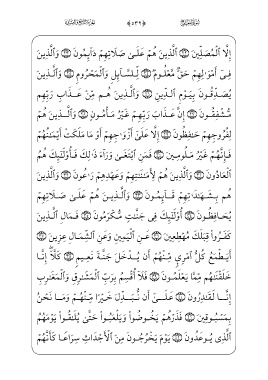 إِلَّا ٱلْمُصَلِّينَ ٱلَّذِينَ هُمْ عَلَىٰ صَلَاتِهِمْ دَآئِمُونَ وَٱلَّذِينَ
فِىٓ أَمْوَٰلِهِمْ حَقٌّ مَّعْلُومٌ لِّلسَّآئِلِ وَٱلْمَحْرُومِ وَٱلَّذِينَ
يُصَدِّقُونَ بِيَوْمِ ٱلدِّينِ وَٱلَّذِينَ هُم مِّنْ عَذَابِ رَبِّهِم
مُّشْفِقُونَ إِنَّ عَذَابَ رَبِّهِمْ غَيْرُ مَأْمُونٍ وَٱلَّذِينَ هُمْ
لِفُرُوجِهِمْ حَٰفِظُونَ إِلَّا عَلَىٰٓ أَزْوَٰجِهِمْ أَوْ مَا مَلَكَتْ أَيْمَٰنُهُمْ
فَإِنَّهُمْ غَيْرُ مَلُومِينَ فَمَنِ ٱبْتَغَىٰ وَرَآءَ ذَٰلِكَ فَأُو۟لَٰٓئِكَ هُمُ
ٱلْعَادُونَ وَٱلَّذِينَ هُمْ لِأَمَٰنَٰتِهِمْ وَعَهْدِهِمْ رَٰعُونَ وَٱلَّذِينَ
هُم بِشَهَٰدَٰتِهِمْ قَآئِمُونَ وَٱلَّذِينَ هُمْ عَلَىٰ صَلَاتِهِمْ
يُحَافِظُونَ أُو۟لَٰٓئِكَ فِى جَنَّٰتٍ مُّكْرَمُونَ فَمَالِ ٱلَّذِينَ
كَفَرُوا۟ قِبَلَكَ مُهْطِعِينَ عَنِ ٱلْيَمِينِ وَعَنِ ٱلشِّمَالِ عِزِينَ
أَيَطْمَعُ كُلُّ ٱمْرِئٍ مِّنْهُمْ أَن يُدْخَلَ جَنَّةَ نَعِيمٍ كَلَّآ إِنَّا
خَلَقْنَٰهُم مِّمَّا يَعْلَمُونَ فَلَآ أُقْسِمُ بِرَبِّ ٱلْمَشَٰرِقِ وَٱلْمَغَٰرِبِ
إِنَّا لَقَٰدِرُونَ عَلَىٰٓ أَن نُّبَدِّلَ خَيْرًا مِّنْهُمْ وَمَا نَحْنُ
بِمَسْبُوقِينَ فَذَرْهُمْ يَخُوضُوا۟ وَيَلْعَبُوا۟ حَتَّىٰ يُلَٰقُوا۟ يَوْمَهُمُ
ٱلَّذِى يُوعَدُونَ يَوْمَ يَخْرُجُونَ مِنَ ٱلْأَجْدَاثِ سِرَاعًا كَأَنَّهُمْ